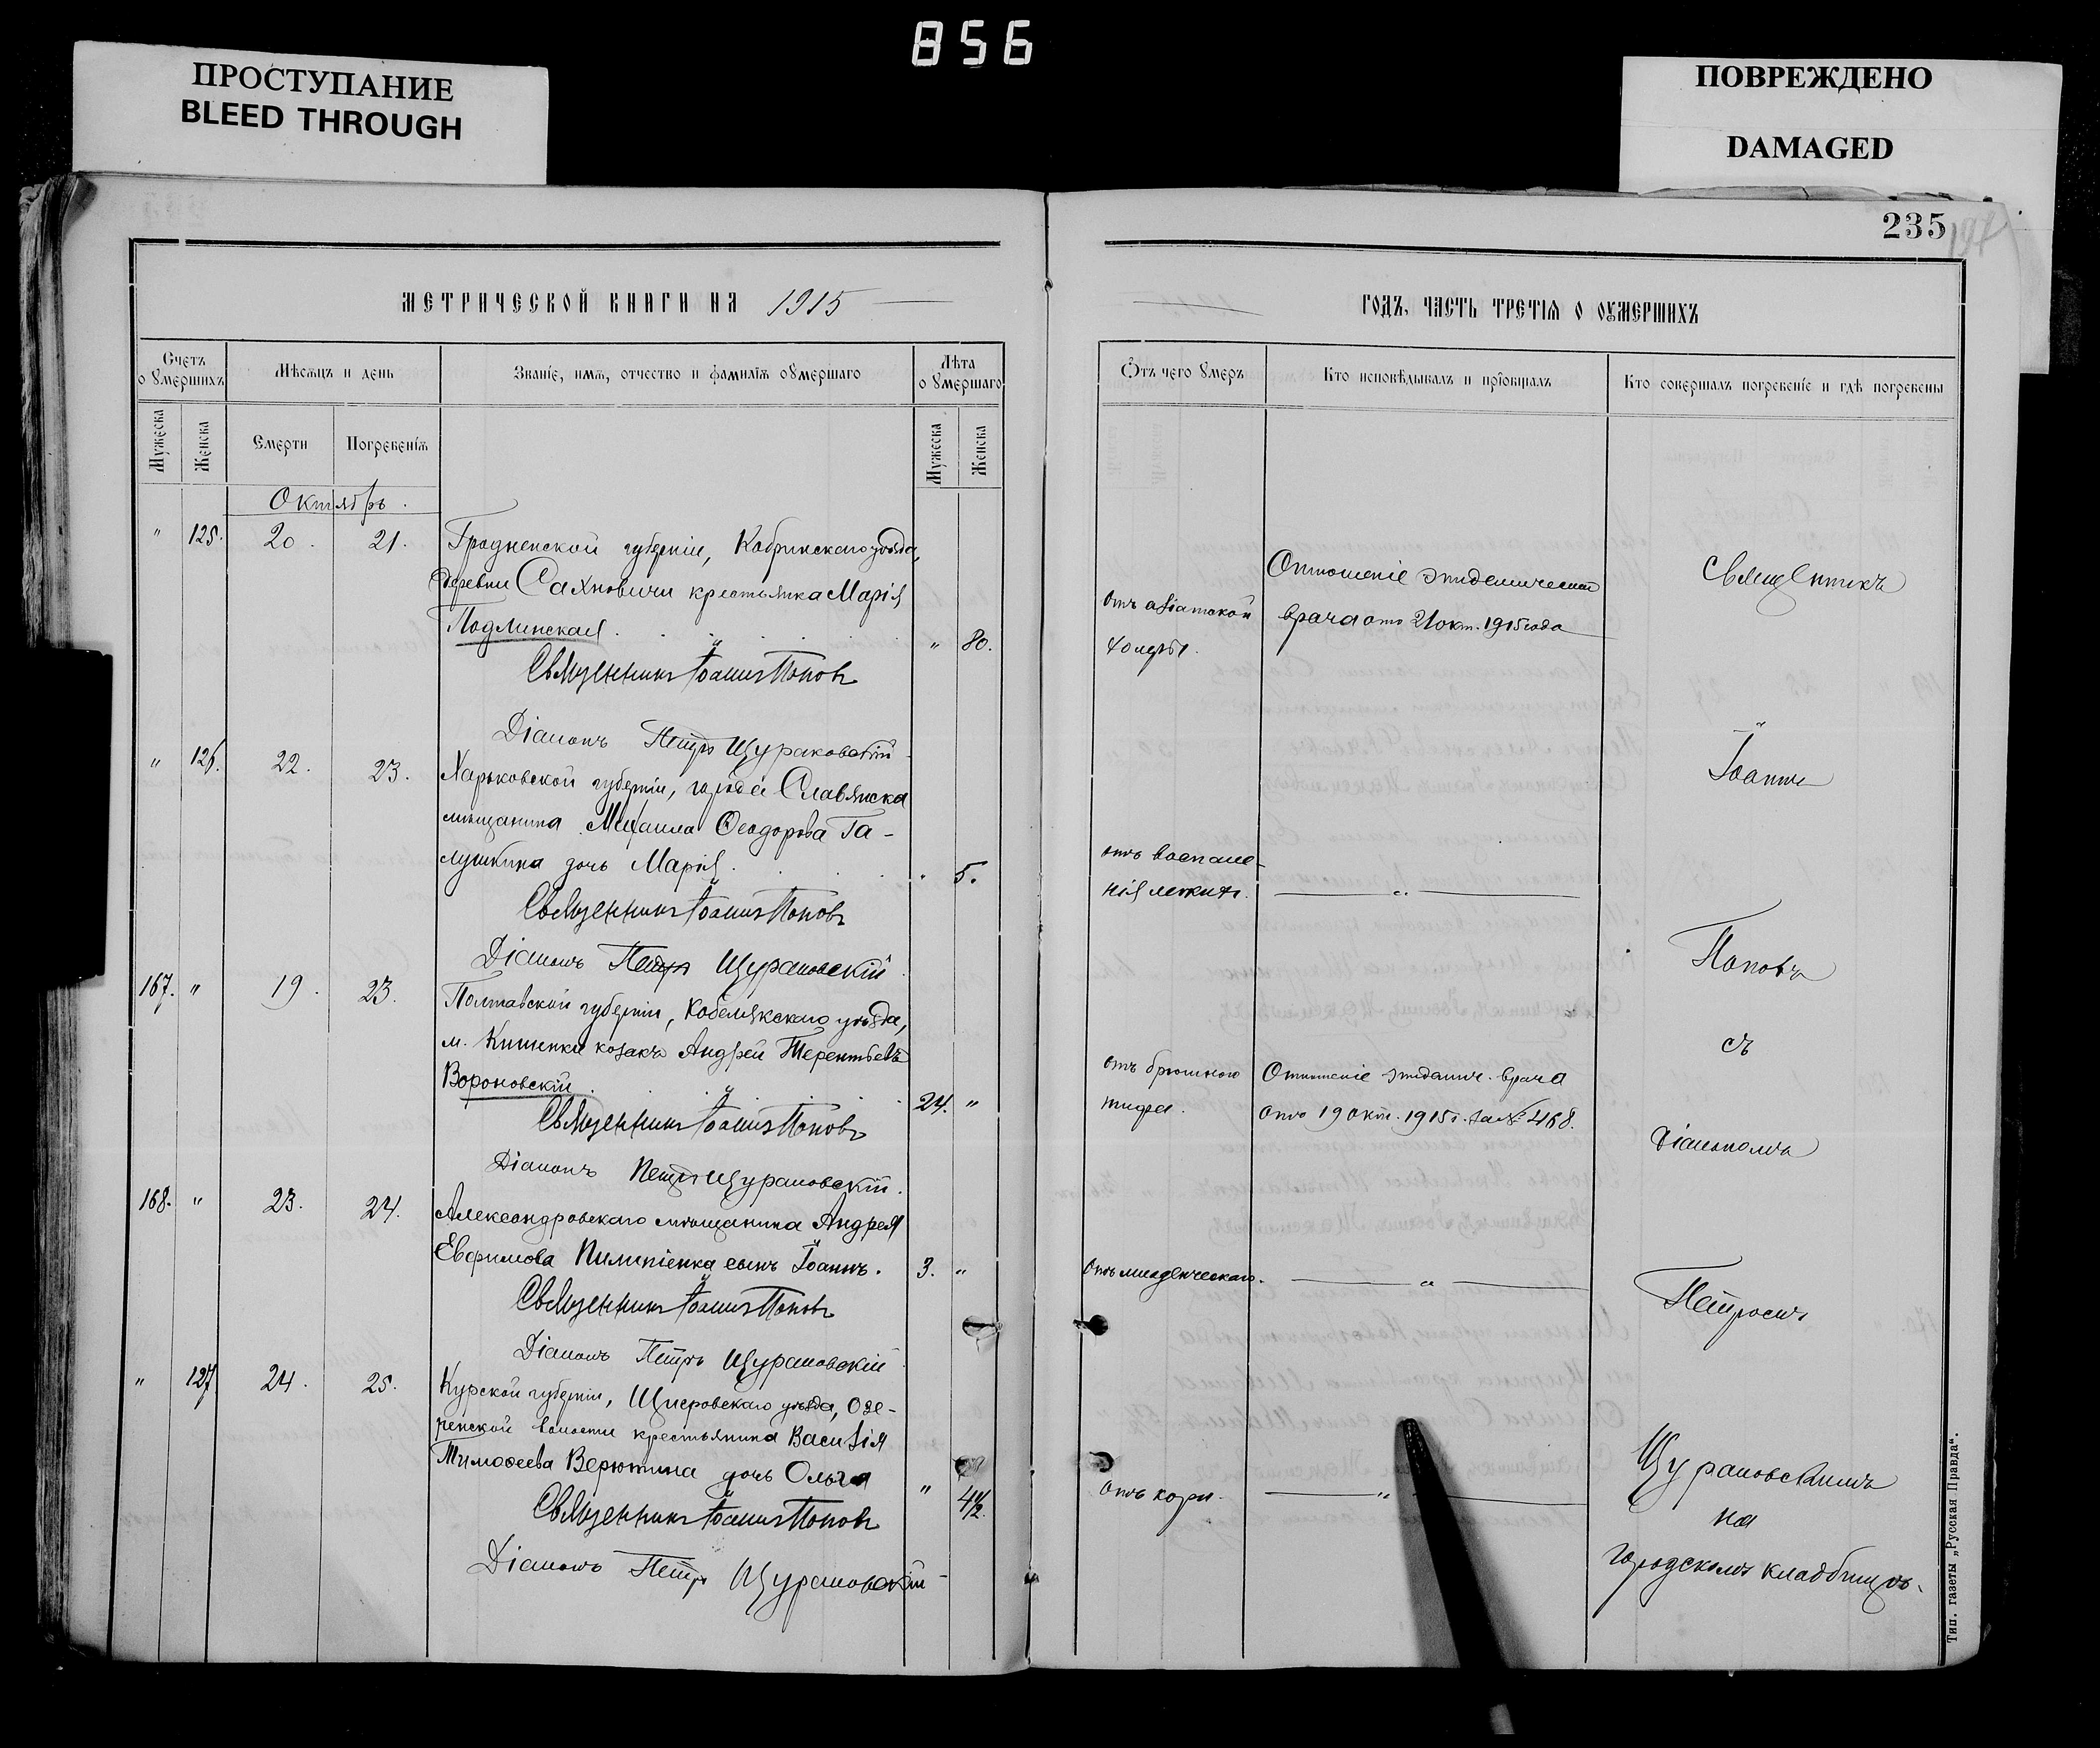 856
ПРОСТУПАНИЕ
BLEED THROUGH
ПОВРЕЖДЕНО
DAMAGED
235
МЕТРИЧЕСКОЙ КНИГИ НА 1915
ГОДЪ, ЧАСТЬ ТРЕТІЯ О ОУМЕРШИХЪ
Счетъ о умершихъ
Мѣсяцъ и день
Званіе, имя, отчество и фамилія оумершаго
Лѣта оумершаго
Отъ чего умеръ
Кто исповѣдывалъ и пріобщалъ
Кто совершалъ погребеніе и гдѣ погребены
Мужеска
Женска
Смерти
Погребенія
Мужеска
Женска
Октябрь.
" 125. 20. 21. Гродненской губерніи, Кобринскаго уѣзда,
деревни Сахновичи крестьянка Марія
Подлинская " 80.
отъ азіатской
холеры.
Отношеніе эпидемической
врача отъ 21 окт. 1915 года
Священникъ Іоаннъ Поповъ
Діаконъ Петръ Щурановскій
" 126. 22. 23. Харьковской губерніи, города Славянска
мѣщанина Михаила Ѳеодорова Га-
лушкина дочь Марія. " 5.
отъ воспале-
нія легкихъ. "
Священникъ Іоаннъ Поповъ
Діаконъ Петръ Щурановскій
167. " 19. 23. Полтавской губерніи, Кобелякскаго уѣзда,
м. Кишенки козакъ Андрей Терентьевъ
Вороновскій 24. "
отъ брюшного
тифа.
Отношеніе эпидемич. врача
отъ 19 окт. 1915 г. за № 468.
Священникъ Іоаннъ Поповъ
Діаконъ Петръ Щурановскій.
168. " 23. 24. Александровскаго мѣщанина Андрея
Евфимова Пилипенка сынъ Іоаннъ. 3. "
отъ младенческаго. "
Священникъ Іоаннъ Поповъ
Діаконъ Петръ Щурановскій
" 127 24. 25. Курской губерніи, Щигровскаго уѣзда, Озе-
ренской волости крестьянина Василія
Тимоѳеева Верютина дочь Ольга " 4½.
отъ кори. "
Священникъ Іоаннъ Поповъ
Діаконъ Петръ Щурановскій
Священникъ
Іоаннъ
Поповъ
съ
діакономъ
Петромъ
Щурановскимъ
на
городскомъ кладбищѣ.
Тип. газеты „Русская Правда“.